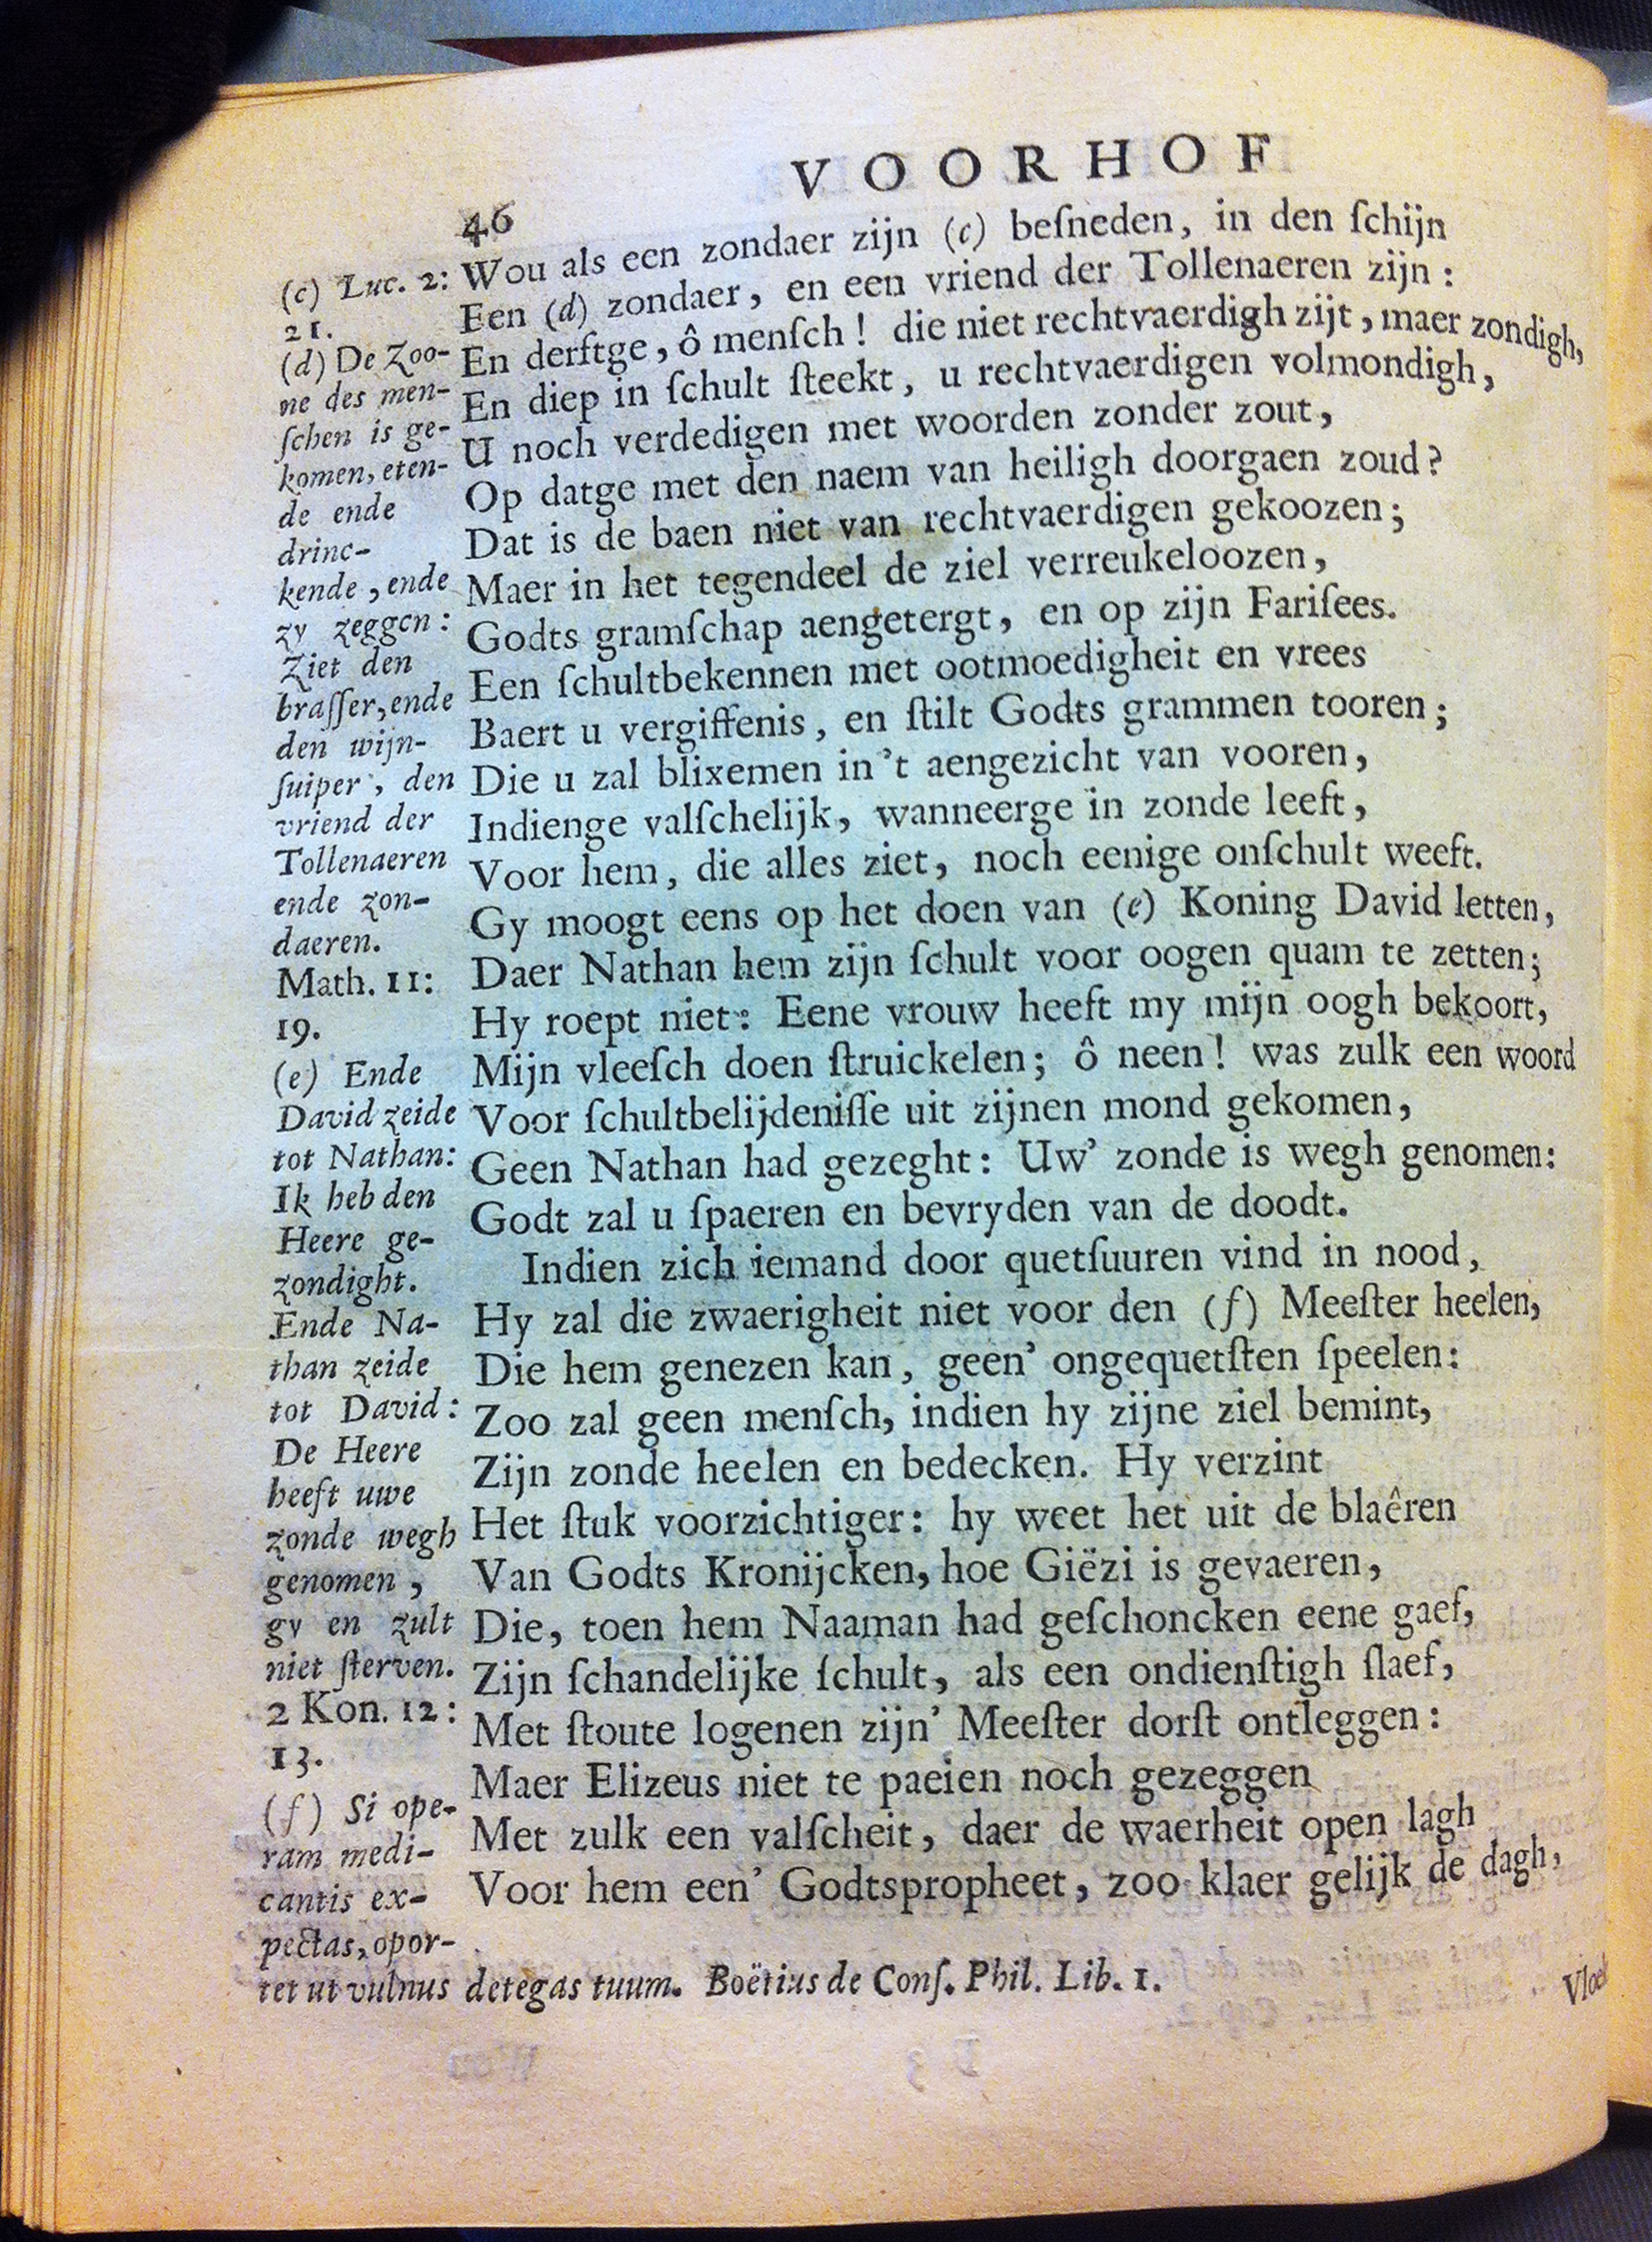 VOORHOF
46
Wou als een zondaer zijn (c) beſneden, in den ſchijn
Een (d) zondaer, en een vriend der Tollenaeren zijn:
En derftge, ô menſch! die niet rechtvaerdigh zijt, maer zondigh,
En diep in ſchult ſteekt, u rechtvaerdigen volmondigh,
U noch verdedigen met woorden zonder zout,
Op datge met den naem van heiligh doorgaen zoud?
Dat is de baen niet van rechtvaerdigen gekoozen;
Maer in het tegendeel de ziel verreukeloozen,
Godts gramſchap aengetergt, en op zijn Fariſees.
Een ſchultbekennen met ootmoedigheit en vrees
Baert u vergiffenis, en ſtilt Godts grammen tooren;
Die u zal blixemen in't aengezicht van vooren,
Indienge valſchelijk, wanneerge in zonde leeft,
Voor hem, die alles ziet, noch eenige onſchult weeft.
Gy moogt eens op het doen van (e) Koning David letten,
Daer Nathan hem zijn ſchult voor oogen quam te zetten;
Hy roept niet: Eene vrouw heeft my mijn oogh bekoort,
Mijn vleeſch doen ſtruickelen; ô neen! was zulk een woord
Voor ſchultbelijdeniſſe uit zijnen mond gekomen,
Geen Nathan had gezeght: Uw' zonde is wegh genomen:
Godt zal u ſpaeren en bevryden van de doodt.
Indien zich iemand door quetſuuren vind in nood,
Hy zal die zwaerigheit niet voor den (f) Meeſter heelen,
Die hem genezen kan, geen' ongequetſten ſpeelen:
Zoo zal geen menſch, indien hy zijne ziel bemint,
Zijn zonde heelen en bedecken. Hy verzint
Het ſtuk voorzichtiger: hy weet het uit de blaêren
Van Godts Kronijcken, hoe Giëzi is gevaeren,
Die, toen hem Naaman had geſchoncken eene gaef,
Zijn ſchandelijke ſchult, als een ondienſtigh ſlaef,
Met ſtoute logenen zijn' Meeſter dorſt ontleggen:
Maer Elizeus niet te paeien noch gezeggen
Met zulk een valſcheit, daer de waerheit open lagh
Voor hem een' Godtspropheet, zoo klaer gelijk de dagh,
(c) Luc. 2:
21.
(d) De Zoo-
ne des men-
ſchen is ge-
komen, eten-
de ende
drinc-
kende, ende
zy zeggen:
Ziet den
braſſer, ende
den wijn-
ſuiper, den
vriend der
Tollenaeren
ende zon-
daeren.
Math. 11:
19.
(e) Ende
David zeide
tot Nathan:
Ik heb den
Heere ge-
zondight.
Ende Na-
than zeide
tot David:
De Heere
heeft uwe
zonde wegh
genomen,
gy en zult
niet ſterven.
2 Kon. 12:
13.
(f) Si ope-
ram medi-
cantis ex-
pectas, opor-
tet ut vulnus detegas tuum. Boëtius de Conſ. Phil. Lib. 1.